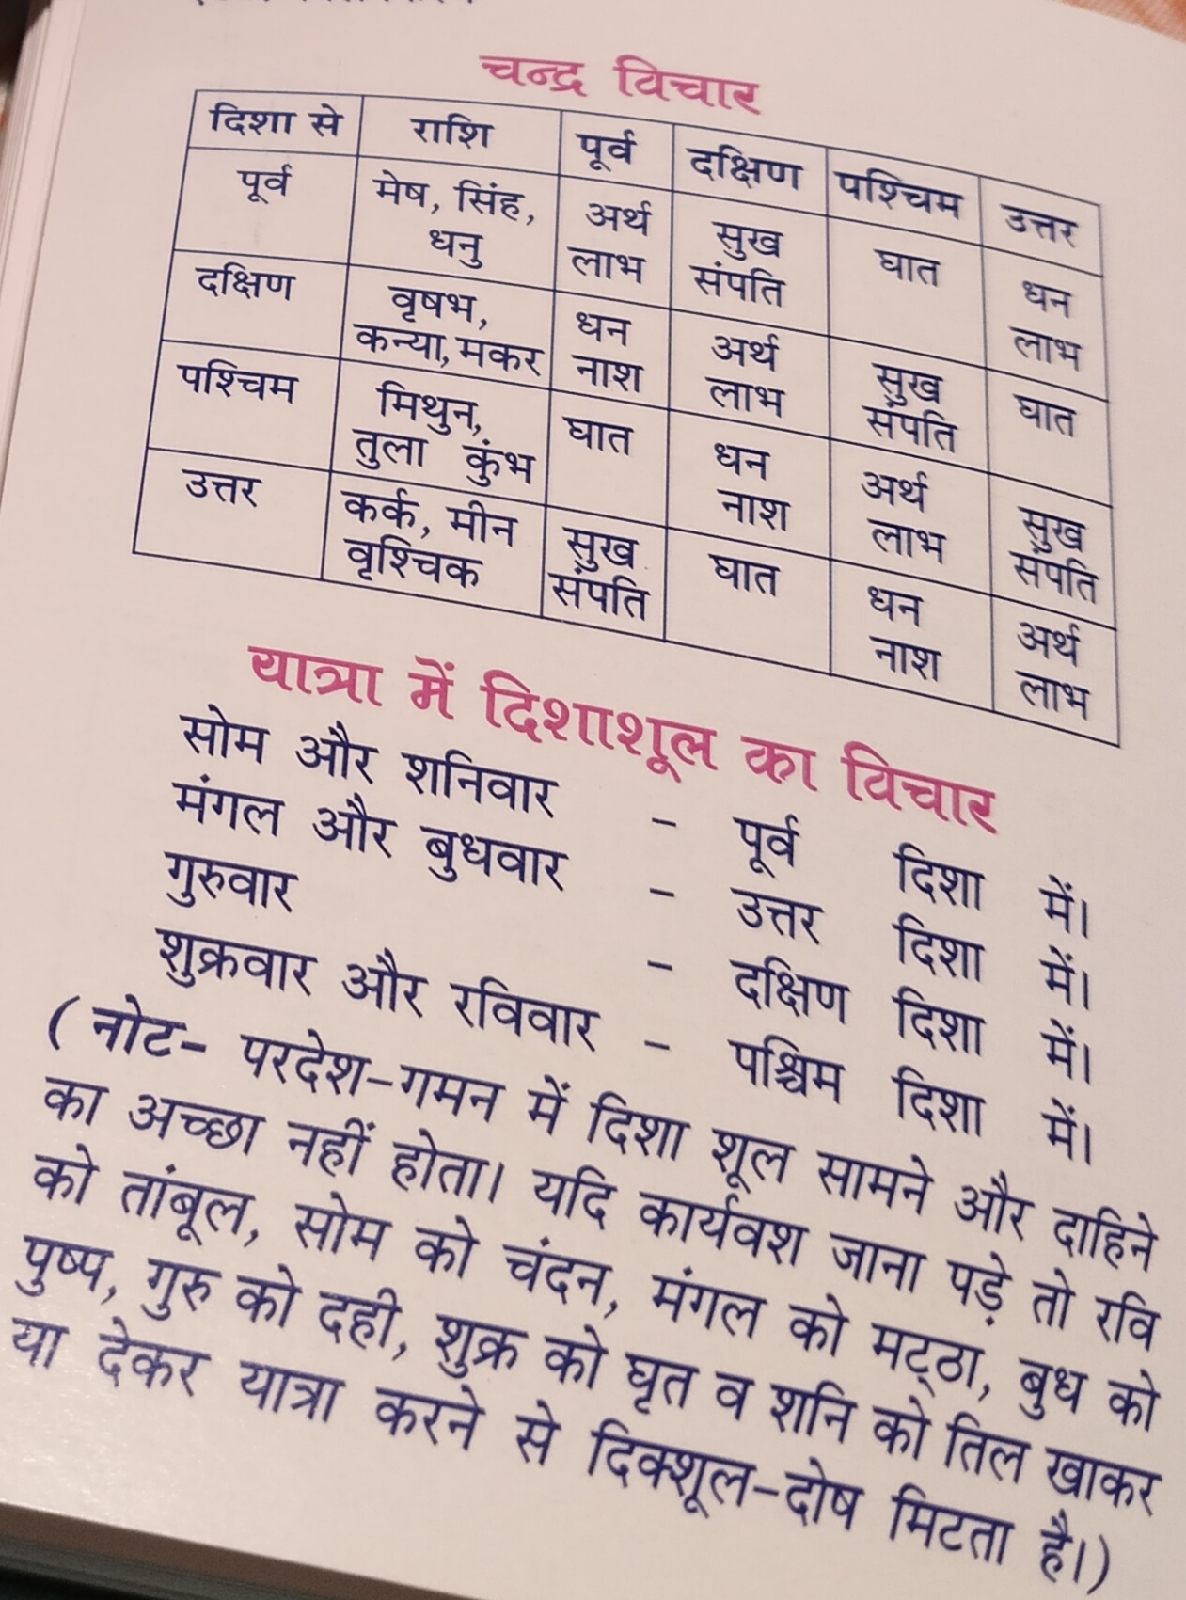 चन्द्र विचार
दिशा से राशि पूर्व दक्षिण पश्चिम उत्तर
पूर्व मेष, सिंह, धनु अर्थ लाभ सुख संपति घात धन लाभ
दक्षिण वृषभ, कन्या, मकर धन नाश अर्थ लाभ सुख संपति घात
पश्चिम मिथुन, तुला कुंभ घात धन नाश अर्थ लाभ सुख संपति
उत्तर कर्क, मीन वृश्चिक सुख संपति घात धन नाश अर्थ लाभ
यात्रा में दिशाशूल का विचार
सोम और शनिवार - पूर्व दिशा में।
मंगल और बुधवार - उत्तर दिशा में।
गुरुवार - दक्षिण दिशा में।
शुक्रवार और रविवार - पश्चिम दिशा में।
( नोट- परदेश-गमन में दिशा शूल सामने और दाहिने
का अच्छा नहीं होता। यदि कार्यवश जाना पड़े तो रवि
को तांबूल, सोम को चंदन, मंगल को मट्ठा, बुध को
पुष्प, गुरु को दही, शुक्र को घृत व शनि को तिल खाकर
या देकर यात्रा करने से दिक्शूल-दोष मिटता है।)